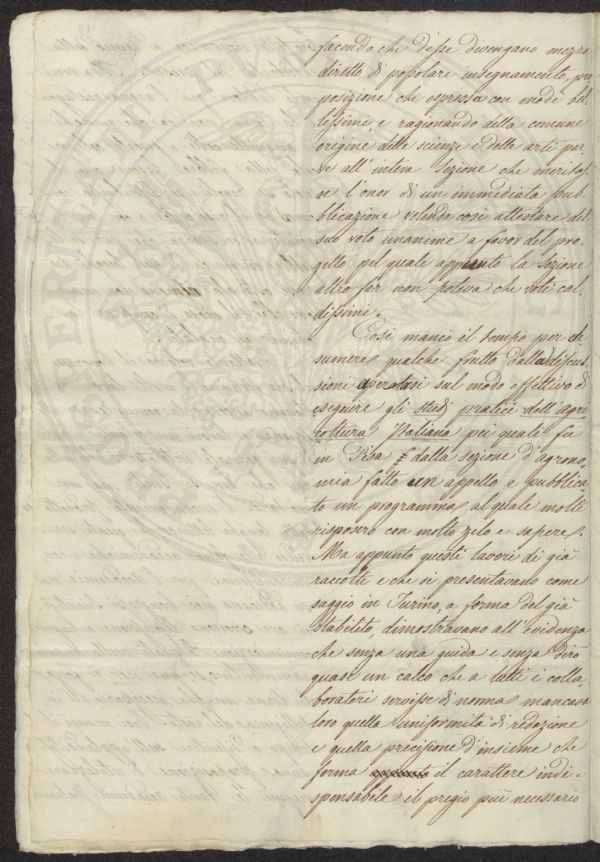 facendo che desse divengano mezzo
diretto di popolare insegnamento, pro
posizione che espressa con modi bel
lissimi, e ragionando della comune
origine delle scienze e delle arti par
ve all'intera Sezione che meritas
se l'onor di un immediata pub-
blicazione volendo così attestare del
suo voto unanime a favor del pro
getto pel quale appunto la Sezione
altro far non poteva che voti cal
dissimi.
Così mancò il tempo per de
sumere qualche frutto dalla discus
sioni apertasi sul modo effettivo di
eseguire gli studj pratici dell'agri
coltura Italiana pei quali fu
in Pisa dalla sezione d'agrono
mia fatto un appello e pubblica
to un programma al quale molti
risposero con molto zelo e sapere.
Ma appunto questi lavori di già
raccolti e che si presentavano come
saggio in Turino, a forma del già
stabilito, dimostravano all'evidenza
che senza una guida e senza dirò
quasi un calco che a tutti i colla
boratori servisse di norma mancava
loro quella uniformità di redazione
e quella precisione d'insieme che
forma il carattere indi-
spensabile il pregio più necessario